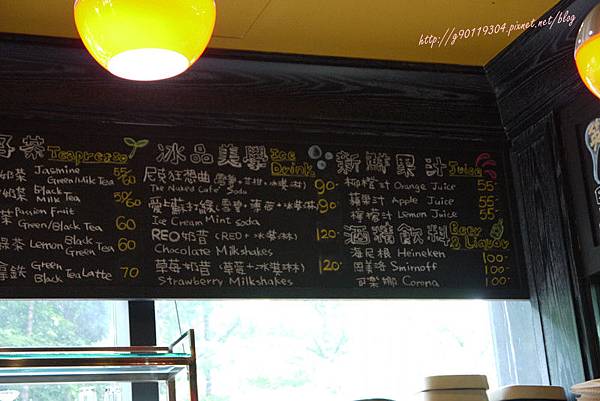 http://g90119304.pixnet.net/blog
好茶 Teapresso
奶茶 Jasmine
Green/Milk Tea 55/60
奶茶 Black
Milk Tea 55/60
Passion Fruit
茶 Green/Black Tea 60
綠茶 Lemon Black Tea
Green 60
拿鐵 Green Tea Latte
Black 70
冰品美學 Ice Drink
尼克狂想曲
The Naked Cafe' Soda 90-
Ice Cream Mint Soda 90-
REO奶昔 (REO+冰淇淋)
Chocolate Milkshakes 120-
草莓奶昔 (草莓+冰淇淋)
Strawberry Milkshakes 120-
新鮮果汁 Juice
柳橙汁 Orange Juice 55-
蘋果汁 Apple Juice 55-
檸檬汁 Lemon Juice 55-
酒精飲料 Beer & Liquor
海尼根 Heineken 100-
思美洛 Smirnoff 100-
可樂娜 Corona 100-